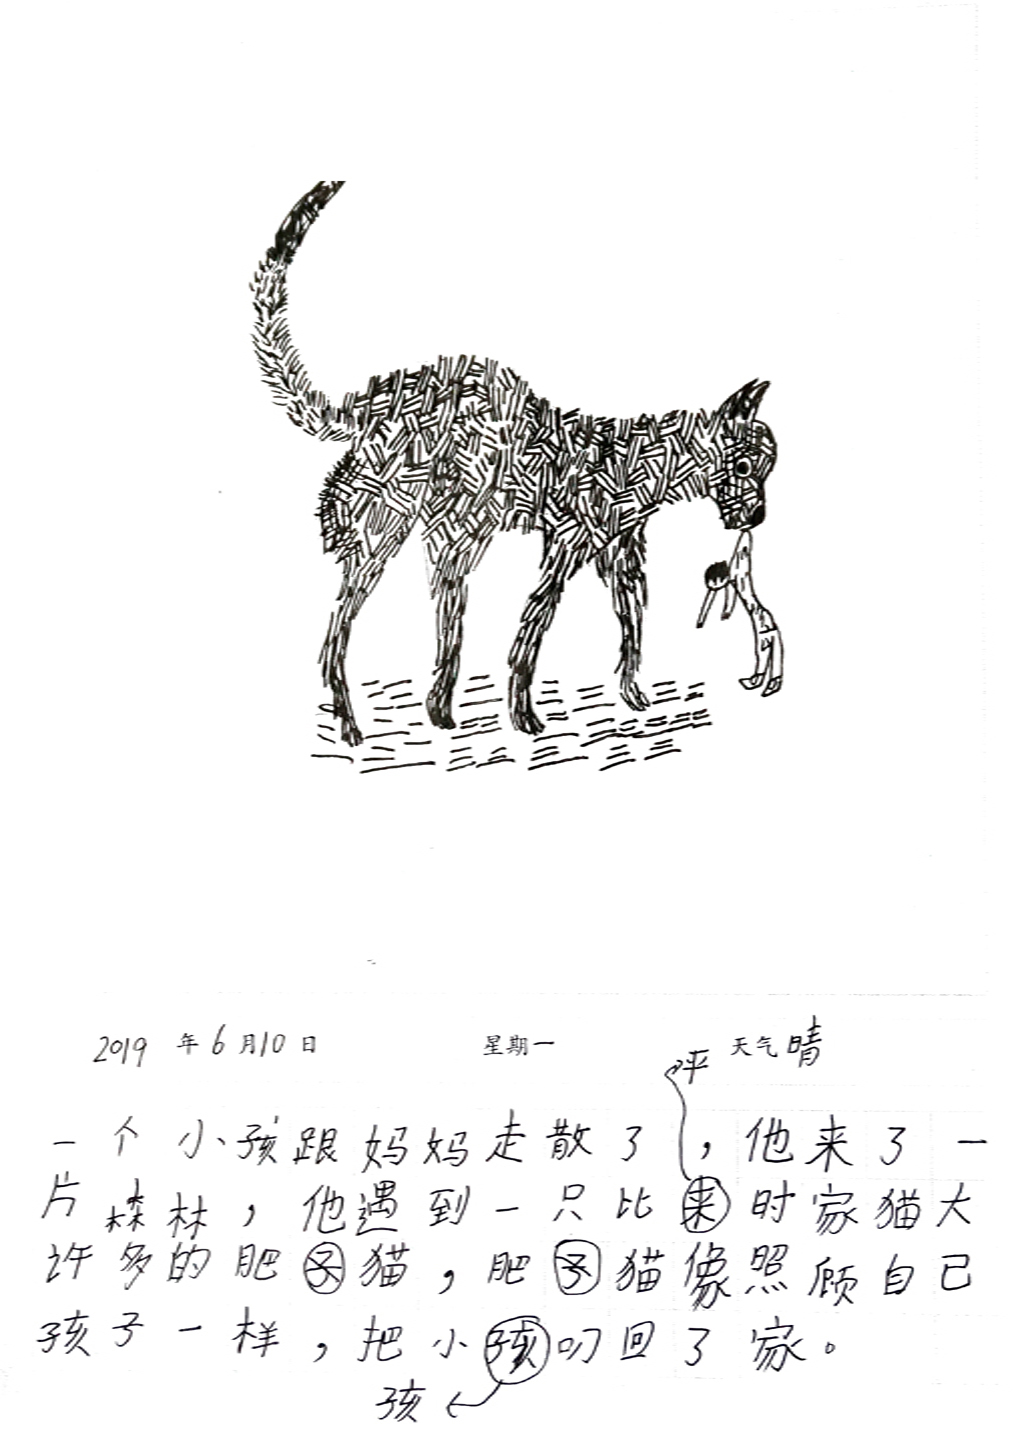 2019 年 6 月 10 日 星期一 天气 晴
平
一个小孩跟妈妈走散了，他来了一
片森林，他遇到一只比来时家猫大
许多的肥猫，肥猫像照顾自己
孩子一样，把小孩叼回了家。
孩